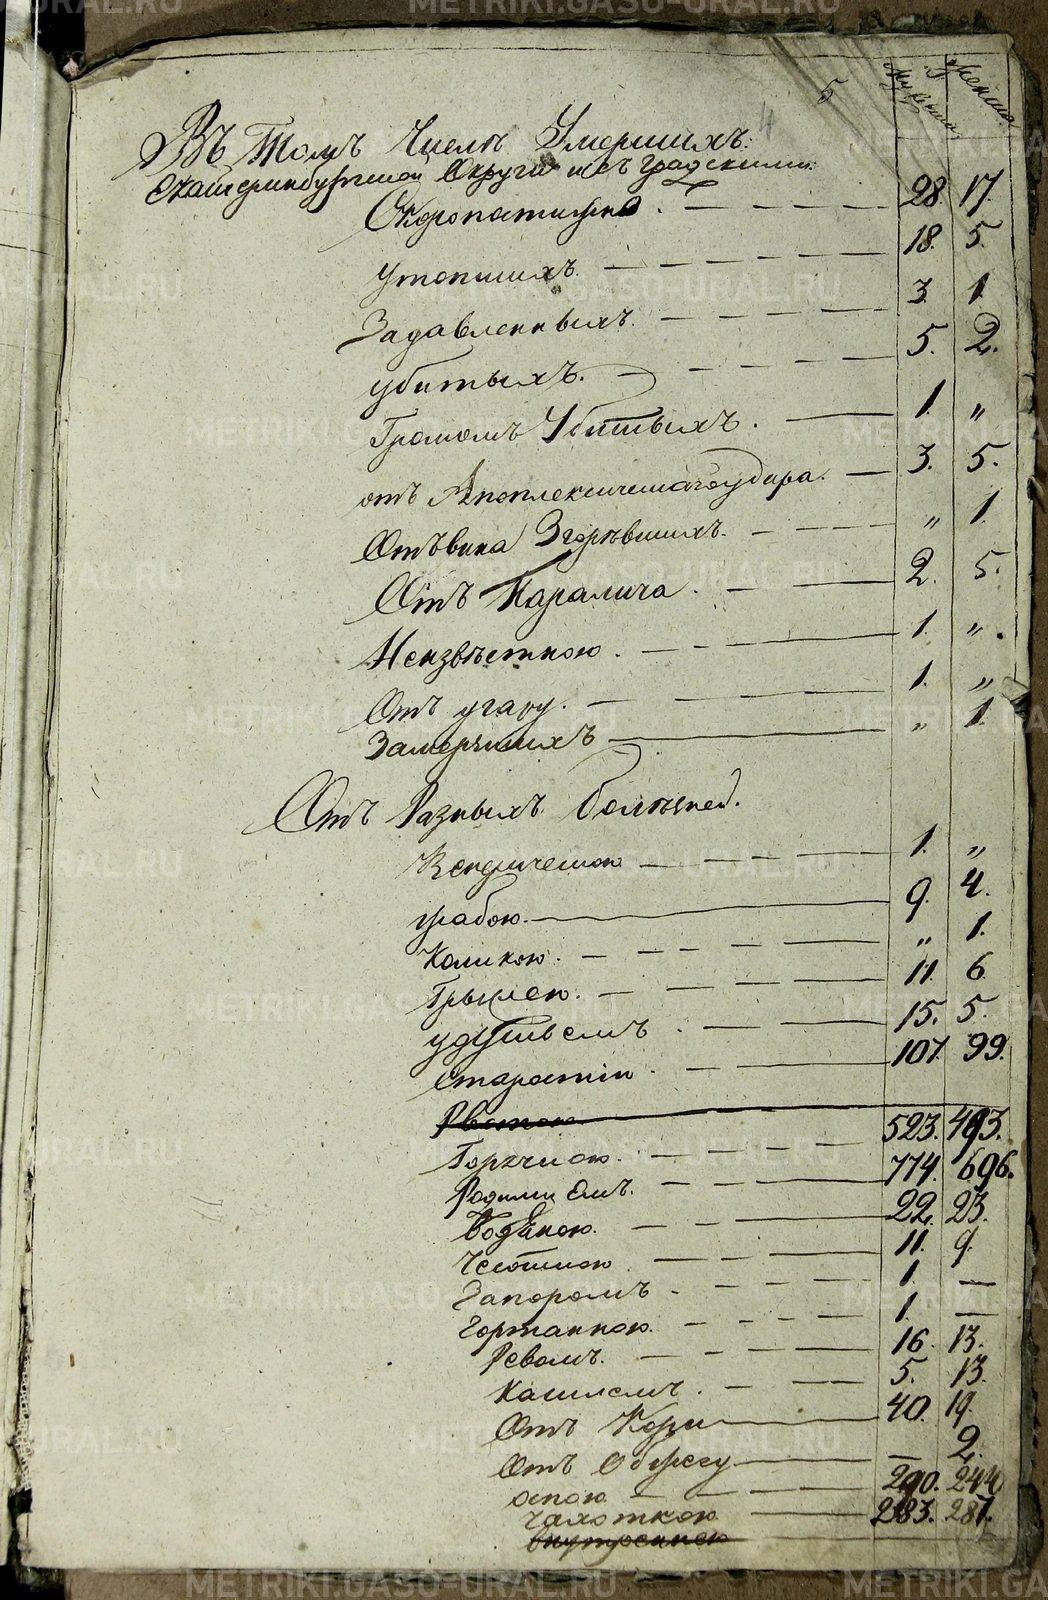 5 4 Мужеска Женска
Въ Томъ Числѣ Умершихъ:
Екатеринбургской Округи и съ градскими:
Скоропостижно. 28. 17.
Утопшихъ. 18. 5.
Задавленныхъ. 3. 1.
убитыхъ. 5. 2.
Громомъ Убитыхъ. 1. "
отъ Апоплексическаго удара. 3. 5.
Отъ вина Згорѣвшихъ. " 1.
Отъ Паралича. 2. 5.
Неизвѣстною. 1. "
Отъ угару. 1. "
Замерзшихъ " 1.
Отъ Разныхъ болѣзней.
Венерическою 1. "
грабою. 9. 4.
Коликою. " 1.
Грыжею. 11. 6.
удушьемъ. 15. 5.
Старостію. 107. 99.
Рвотою
Горячкою. 523. 493.
Родимцомъ. 774. 696.
Водяною. 22. 23.
Чехоткою. 11. 9.
Запоромъ. 1. —
Гортанною. 1. —
Ревомъ. 16. 13.
Кашлемъ. 5. 13.
Отъ Кори 40. 19.
Отъ Обжегу — 2.
оспою 290. 244
чахоткою 283. 287.
внутреннею
METRIKI.GASO-URAL.RU